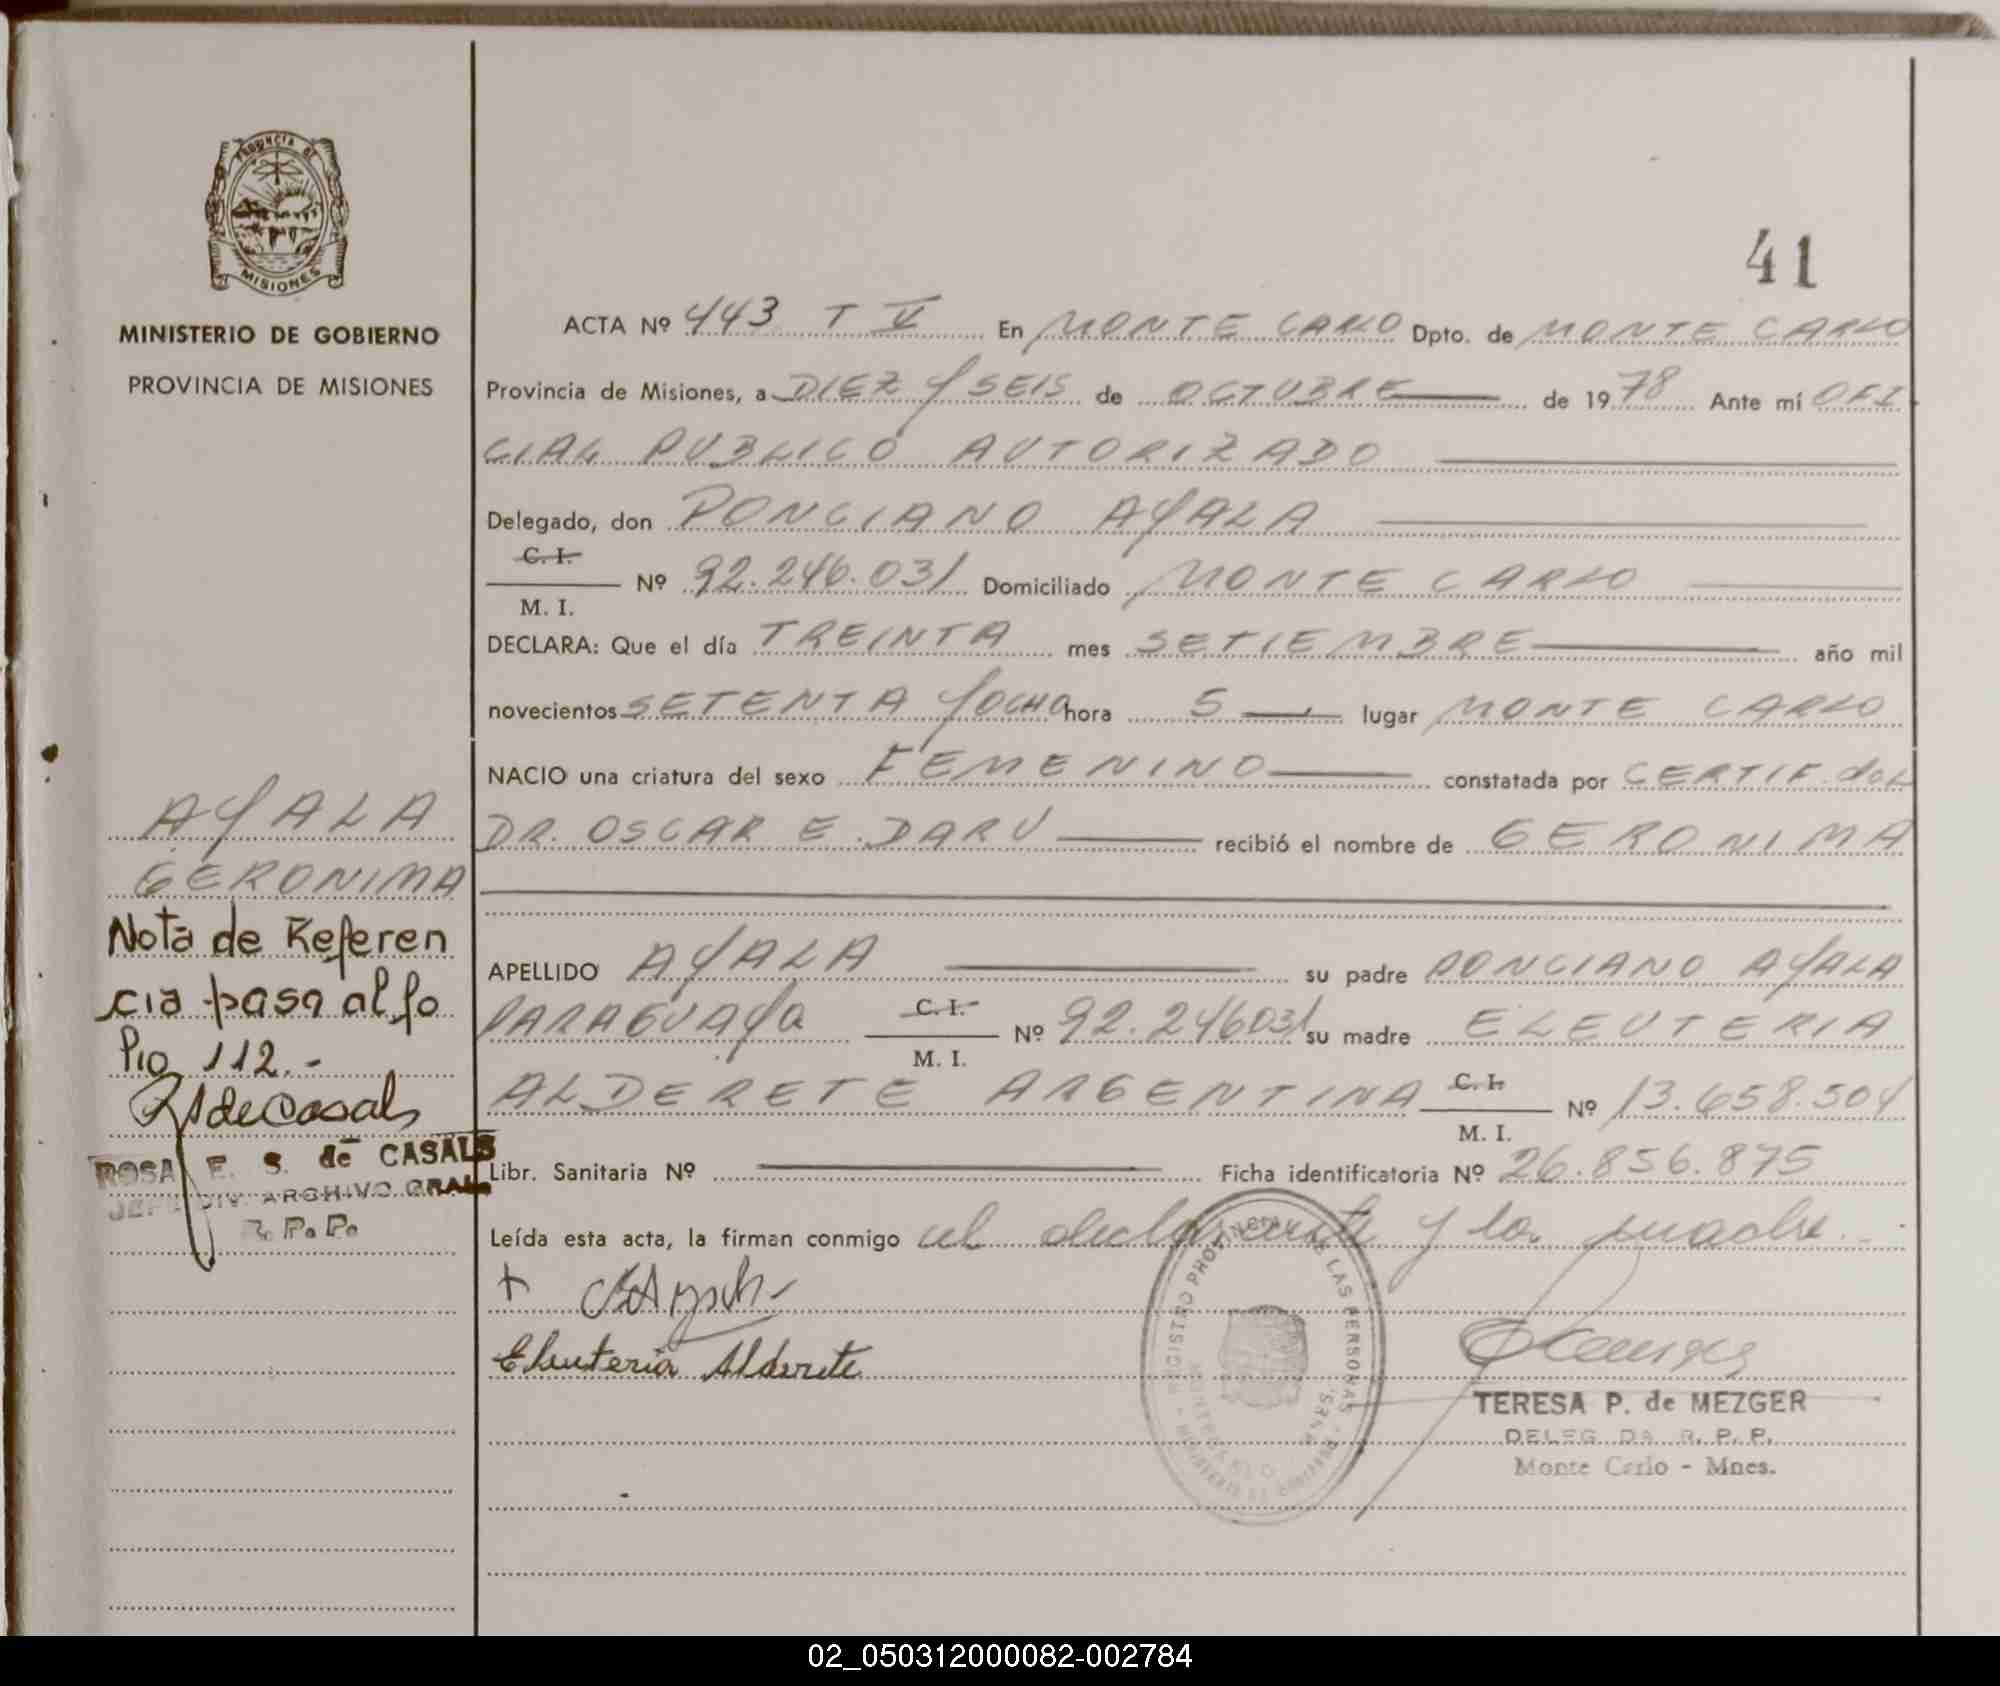 PROVINCIA DE
MISIONES
MINISTERIO DE GOBIERNO
PROVINCIA DE MISIONES
41
ACTA Nº 443 T V En MONTE CARLO Dpto. de MONTE CARLO
Provincia de Misiones, a DIEZ Y SEIS de OCTUBRE de 1978 Ante mí OFI
CIAL PUBLICO AUTORIZADO
Delegado, don PONCIANO AYALA
C. I.
M. I. Nº 92.246.031 Domiciliado MONTE CARLO
DECLARA: Que el día TREINTA mes SETIEMBRE año mil
novecientos SETENTA Y OCHO hora 5 lugar MONTE CARLO
NACIO una criatura del sexo FEMENINO constatada por CERTIF. del
DR. OSCAR E. DARU recibió el nombre de GERONIMA
APELLIDO AYALA su padre PONCIANO AYALA
PARAGUAYa C. I. M. I. Nº 92.246031 su madre ELEUTERIA
ALDERETE ARGENTINA C. I. M. I. Nº 13.658.504
Libr. Sanitaria Nº Ficha identificatoria Nº 26.856.875
Leída esta acta, la firman conmigo el declarante y la madre.
+
Eleuteria Alderete
REGISTRO PROVINCIAL DE LAS PERSONAS
TERESA P. de MEZGER
DELEGADA R. P. P.
Monte Carlo - Mnes.
AYALA
GERONIMA
Nota de Referen
cia pasa al fo
lio 112.-
RSdeCasals
ROSA E. S. de CASALS
JEFE DIV. ARCHIVO GRAL
R. P. P.
02_050312000082-002784